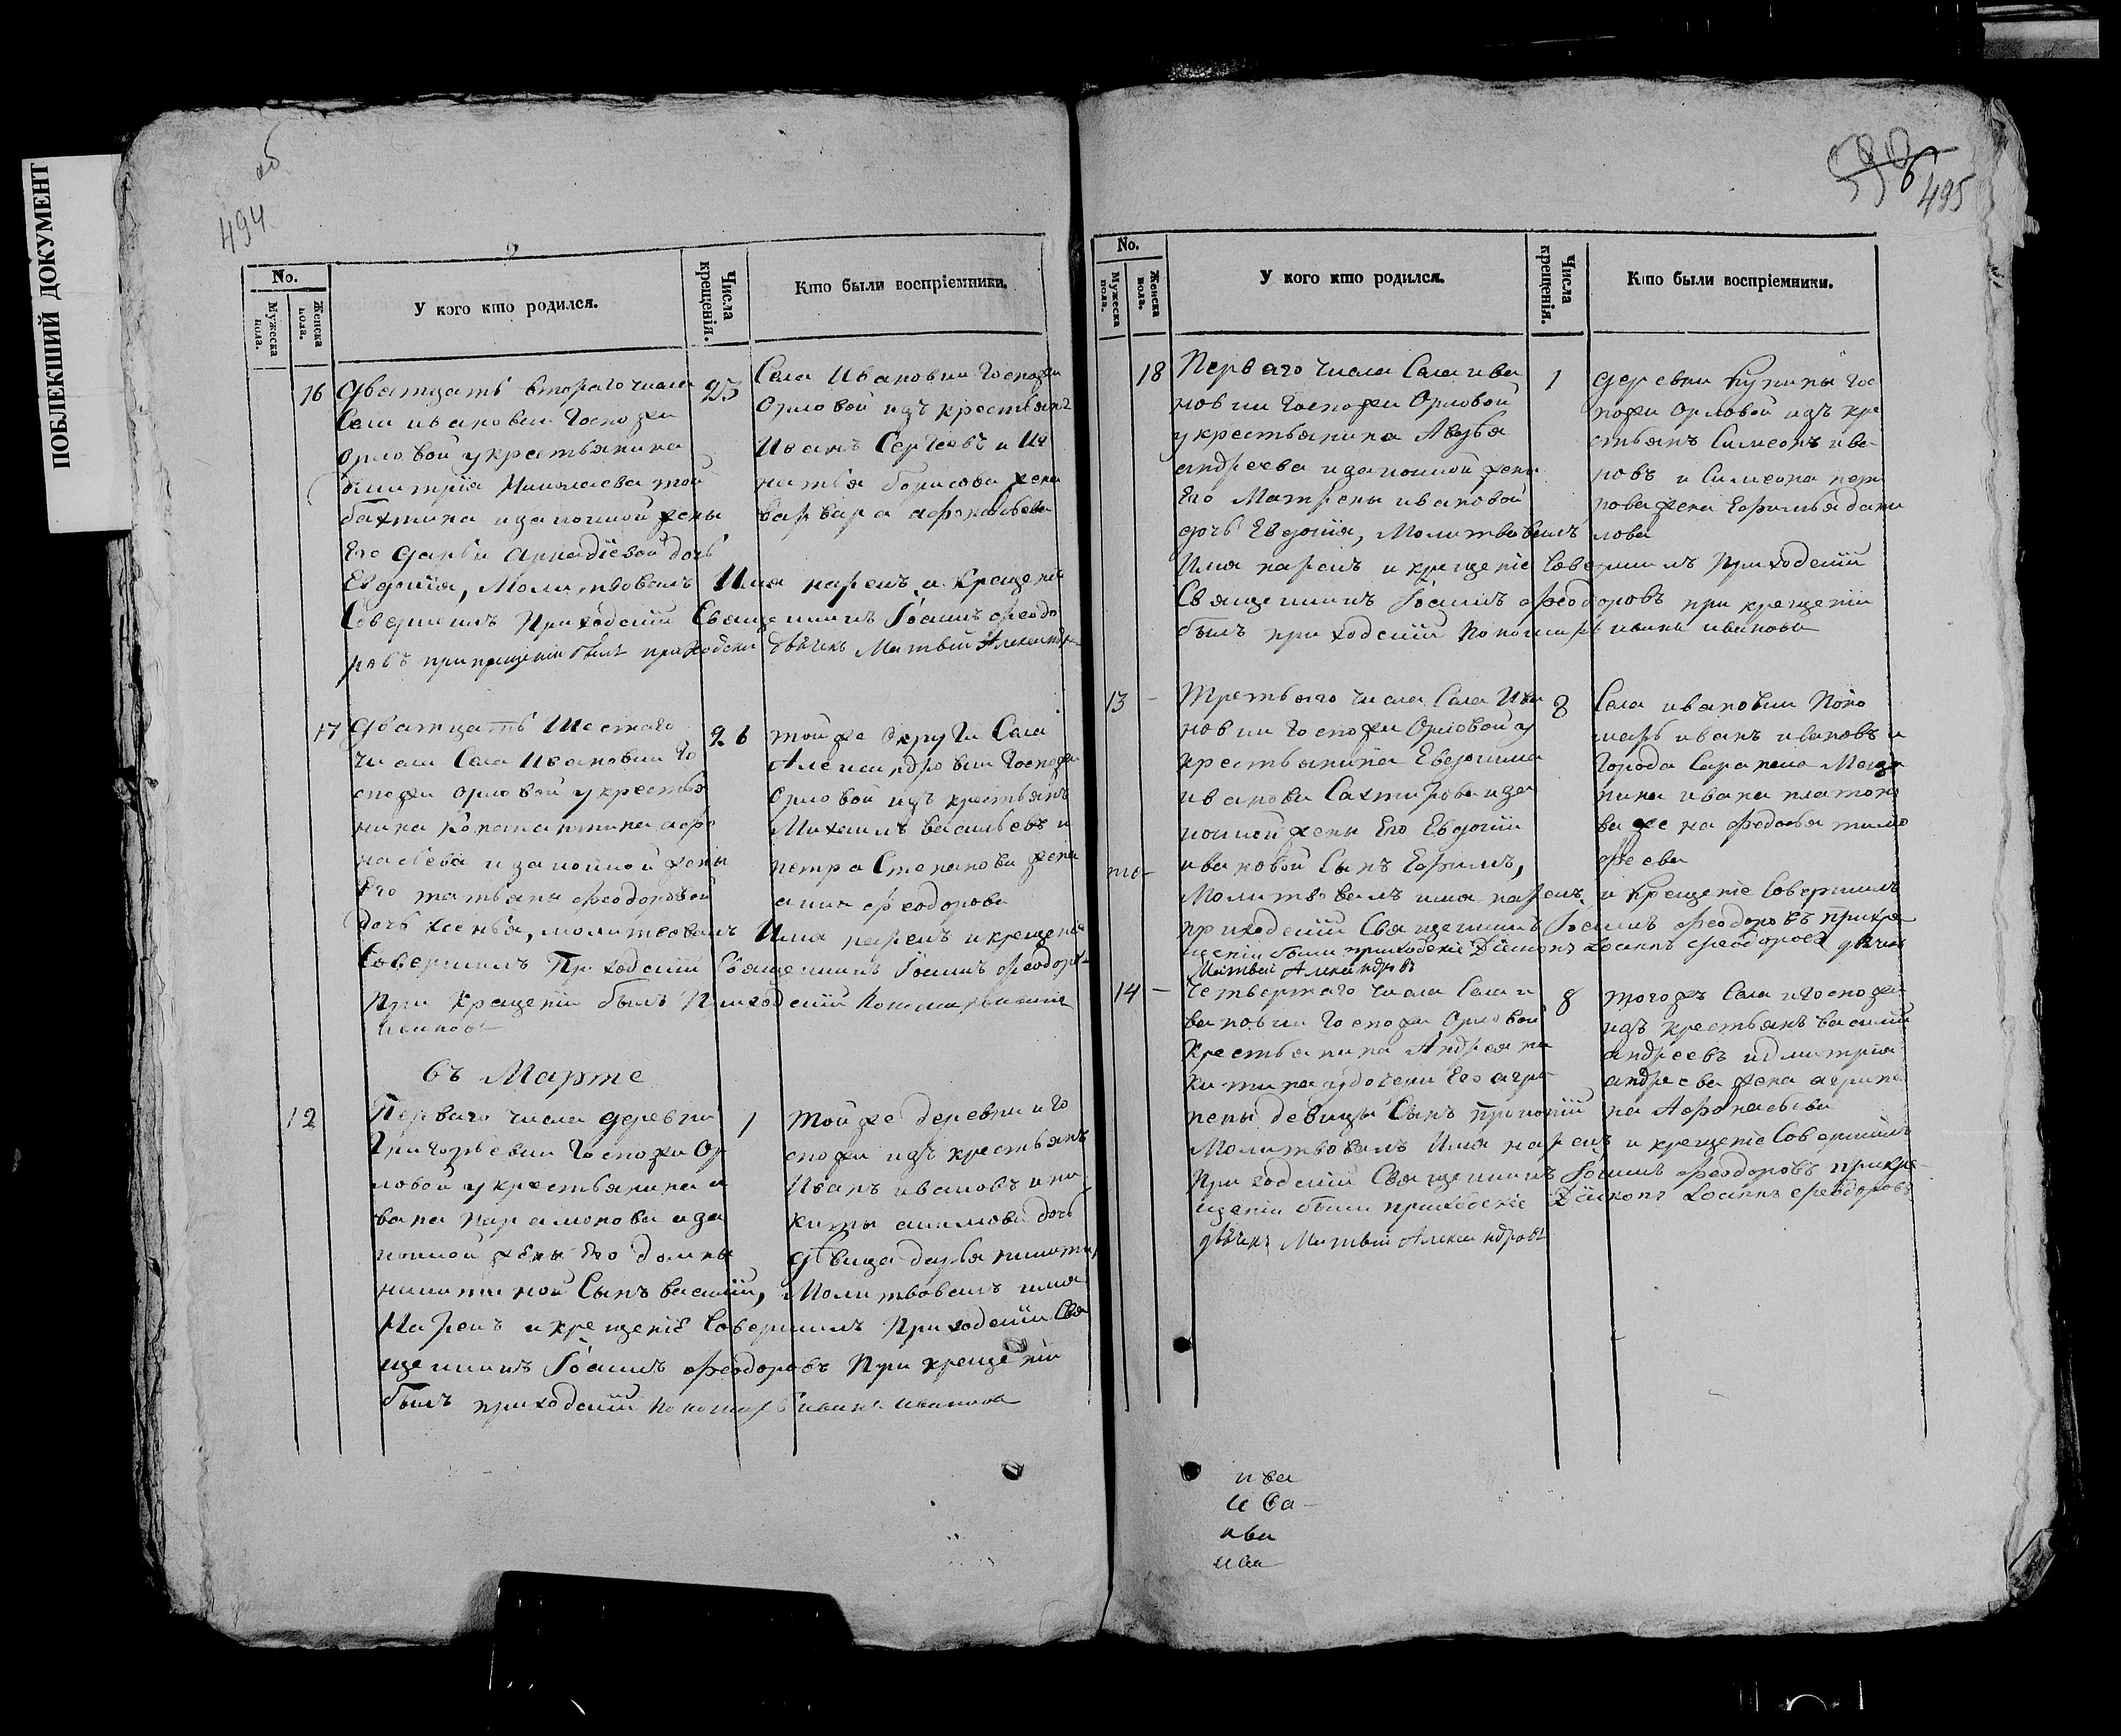 ПОБЛЕКШИЙ ДОКУМЕНТ
об
494
No.
Мужеска пола.
Женска пола.
У кого кто родился.
Числа крещенія.
Кто были воспріемники.
16
Дватцать втораго числа
Села ивановки Госпожи
орловой у крестьянина
Дмитрія Николаева
бахтина и законной жены
Его Дарьи Аркадіевой дочь
Евдокія, Молитвовалъ Имя нарекъ и Крещеніе
Совершилъ Приходскій Священникъ Іоаннъ Феодо
ровъ при крещеніи былъ приходскій дьячекъ Матвей Александр
25
Села Ивановки Госпожи
Орловой изъ крестьянъ
Иванъ Сергеевъ и Иг
натья борисова жена
варвара афонасьева
17
Дватцать Шестаго
числа Села Ивановки Го
спожи орловой у крестья
нина Константина афо
насьева и законной жены
Его татьяны Феодоровой
дочь ксенья, молитвовалъ Имя нарекъ и крещеніе
Совершилъ Приходскій Священникъ Іоаннъ Феодоро
При Крещеніи былъ Приходскій Пономарь
Ивановъ
26
той же округи Села
Александровки Госпожи
Орловой изъ крестьянъ
Михаилъ васильевъ и
петра Степанова жена
анна феодорова
въ Марте
12
Перваго числа деревни
Григорьевки Госпожи Ор
ловой у крестьянина и
вана парамонова и за
конной жены Его домны
никитиной Сынъ василій, Молитвовалъ имя
Нарекъ и крещеніе Совершилъ Приходскій Свя
щенникъ Іоаннъ Феодоровъ При крещеніи
былъ приходскій пономарь иванъ ивановъ
1
Той же деревни и го
спожи изъ крестьянъ
Иванъ ивановъ и ни
киты акимова дочь
девица дарья никити
495
No.
Мужеска пола.
Женска пола.
У кого кто родился.
Числа крещенія.
Кто были воспріемники.
18
Перваго числа Села ива
новки Госпожи Орловой
у крестьянина Авдѣя
андреева и законной жены
Его Матрены ивановой
дочь Евдокія, Молитвовалъ
Имя нарекъ и крещеніе Совершилъ Приходскій
Священникъ Іоаннъ Феодоровъ при крещеніи
былъ приходскій Пономарь иванъ ивановъ
1
деревни Гос
пожи Орловой изъ кре
стьянъ Симеонъ ива
новъ и Симеона пет
рова жена Ефимья дани
лова
13
Третьяго числа Села Ива
новки госпожи Орловой у
крестьянина Евдокима
иванова Сахтирова и за
конной жены Его Евдокіи
ивановой Сынъ Ефимъ,
Молитвовалъ имя нарекъ и Крещеніе Совершилъ
приходскій Священникъ Іоаннъ Феодоровъ при кре
щеніи были приходскіе Діаконъ Іоаннъ Феодоровъ дьячекъ
Матвей Александровъ
8
Села ивановки Поно
марь иванъ ивановъ и
города Сарапела
ивана платоно
ва жена федосья тимо
феева
14
Четвертаго числа Села и
вановки Госпожи Орловой
Крестьянина Андрея ни
китина у дочери Его агре
пены девицы Сынъ прокопій
Молитвовалъ Имя нарекъ и крещеніе Совершилъ
Приходскій Священникъ Іоаннъ Феодоровъ при кре
щеніи были приходскіе Діаконъ Іоаннъ Феодоровъ
дьячекъ Матвей Александровъ
8
тогожъ Села и госпожи
изъ крестьянъ василій
андреевъ и дмитрія
андреева жена агрипе
на Афонасьева
ива
ива
ива
ива